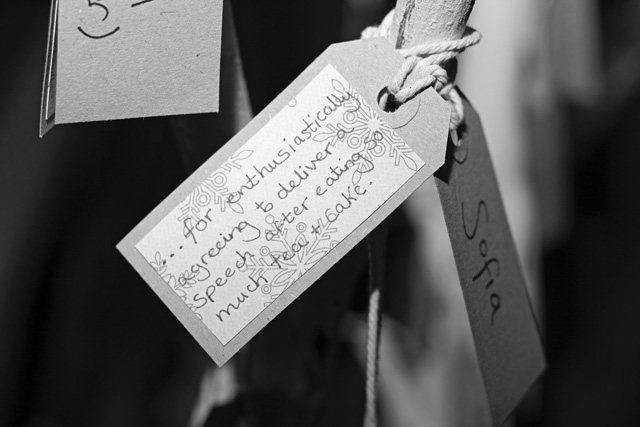 5
... for enthusiastically
agreeing to deliver a
speech after eating so
much tea + cake.
Sofia